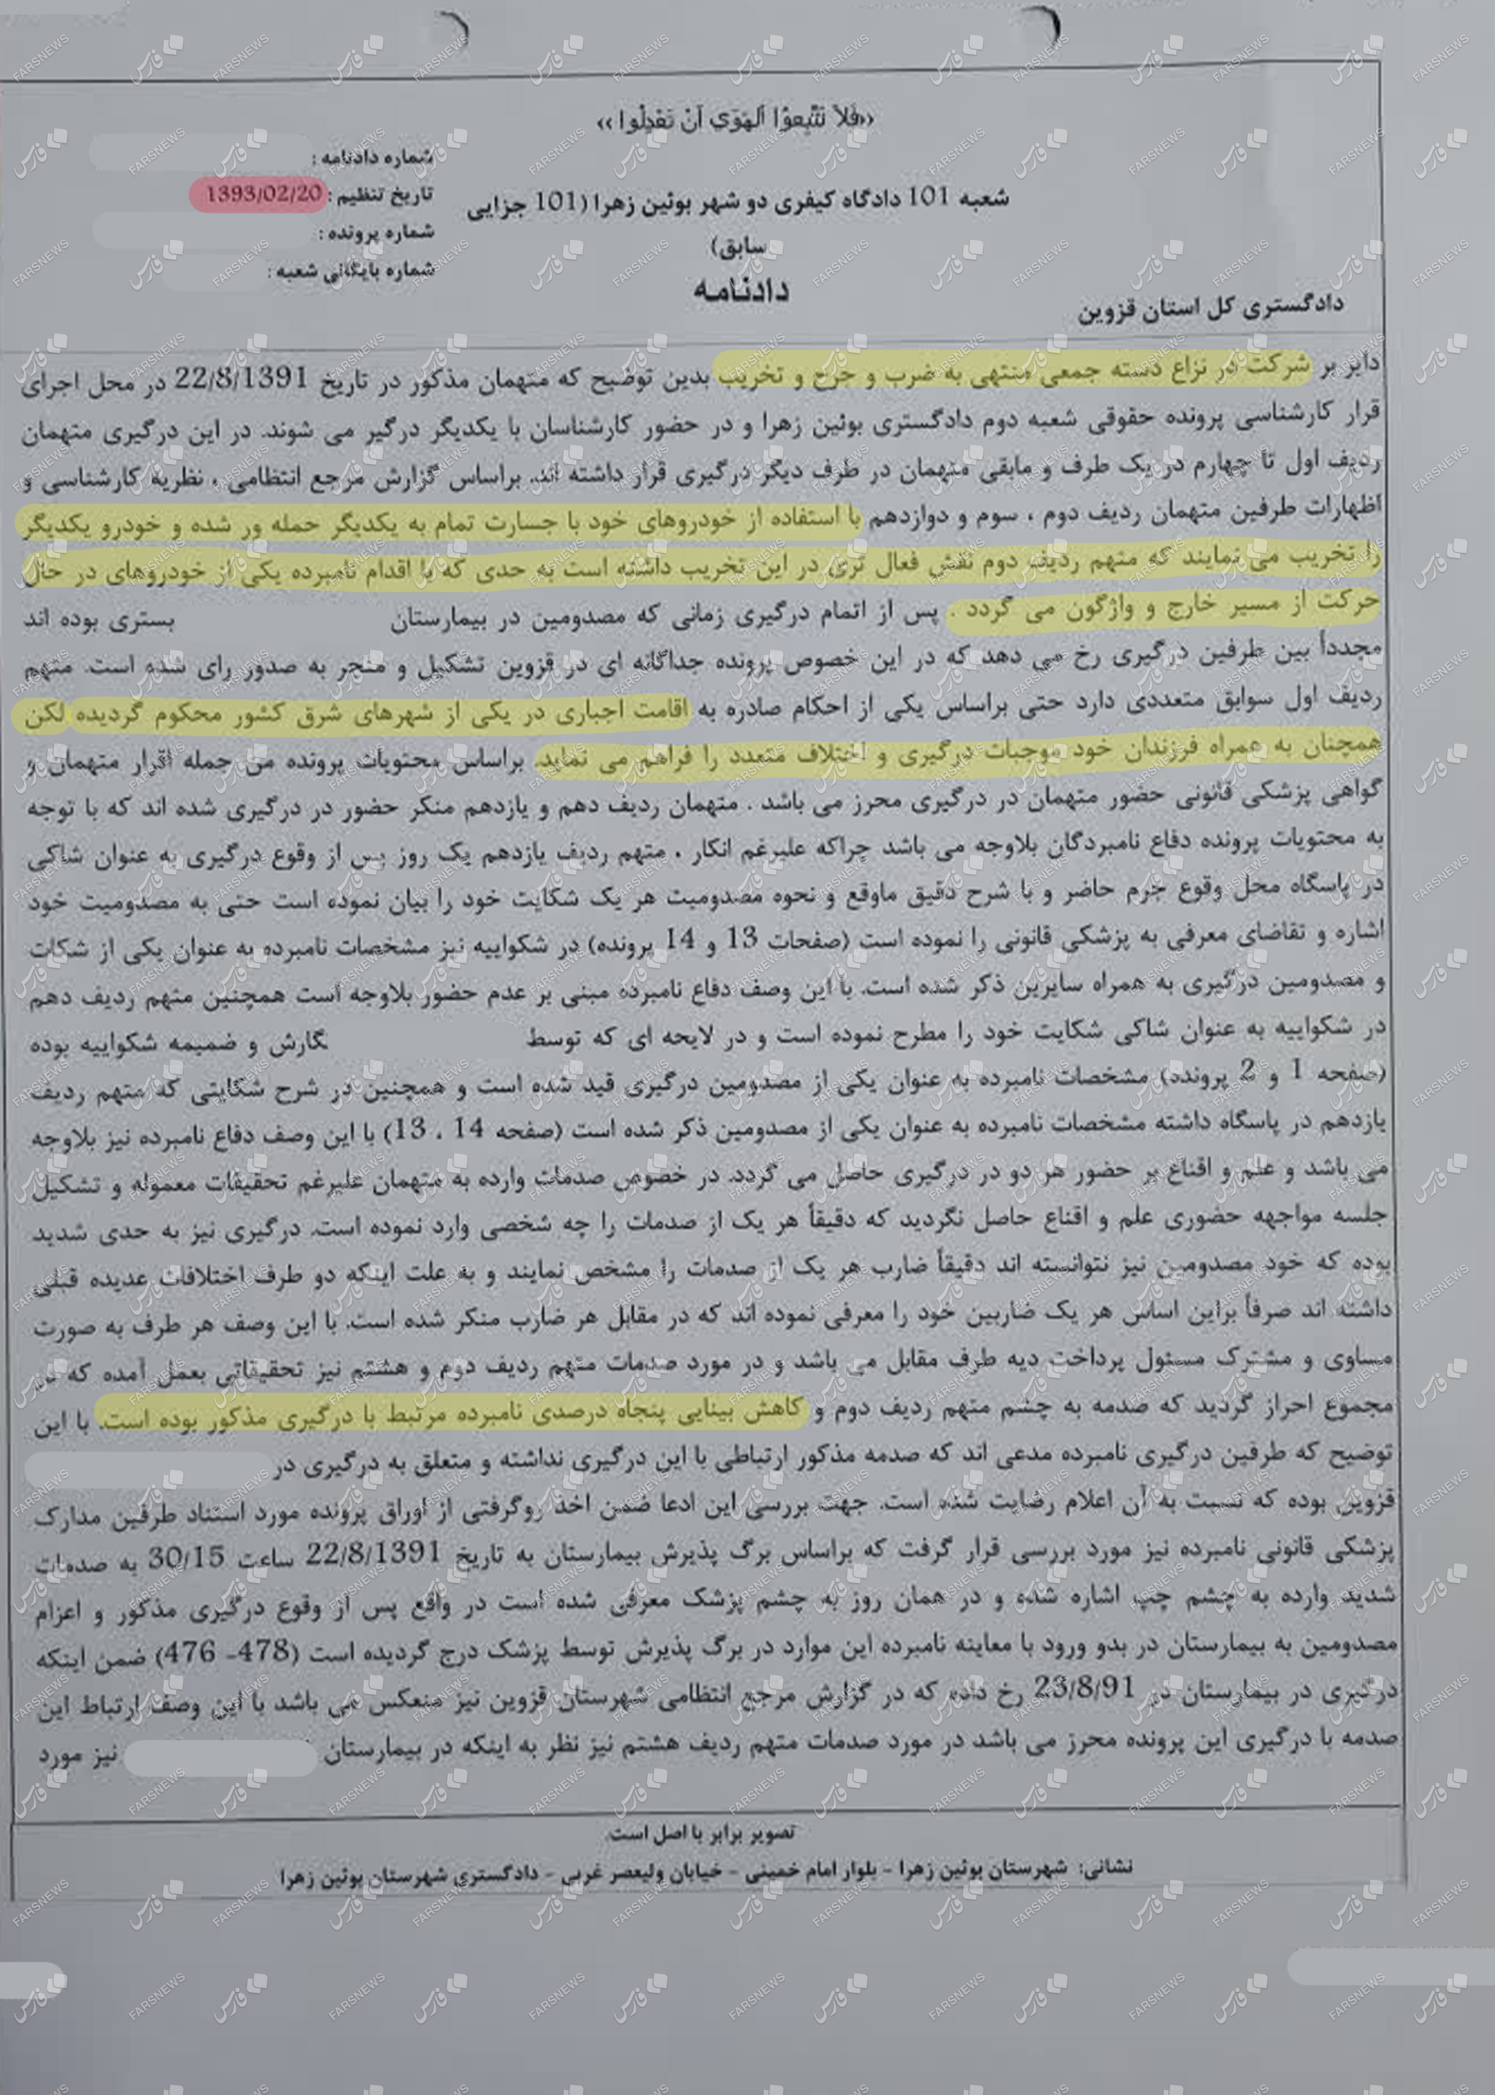 «فَلاَ تَتَّبِعوُا اَلهَوَى اَنْ تَعْدِلُوا»
شماره دادنامه :
تاریخ تنظیم : 1393/02/20
شماره پرونده :
شماره بایگانی شعبه :
شعبه 101 دادگاه کیفری دو شهر بوئین زهرا (101 جزایی
سابق)
دادنامه
دادگستری کل استان قزوین
دایر بر شرکت در نزاع دسته جمعی منتهی به ضرب و جرح و تخریب بدین توضیح که متهمان مذکور در تاریخ 22/8/1391 در محل اجرای
قرار کارشناسی پرونده حقوقی شعبه دوم دادگستری بوئین زهرا و در حضور کارشناسان با یکدیگر درگیر می شوند. در این درگیری متهمان
ردیف اول تا چهارم در یک طرف و مابقی متهمان در طرف دیگر درگیری قرار داشته اند. براساس گزارش مرجع انتظامی ، نظریه کارشناسی و
اظهارات طرفین متهمان ردیف دوم ، سوم و دوازدهم با استفاده از خودروهای خود با جسارت تمام به یکدیگر حمله ور شده و خودرو یکدیگر
را تخریب می نمایند که متهم ردیف دوم نقش فعال تری در این تخریب داشته است به حدی که با اقدام نامبرده یکی از خودروهای در حال
حرکت از مسیر خارج و واژگون می گردد . پس از اتمام درگیری زمانی که مصدومین در بیمارستان بستری بوده اند
مجدداً بین طرفین درگیری رخ می دهد که در این خصوص پرونده جداگانه ای در قزوین تشکیل و منجر به صدور رای شده است. متهم
ردیف اول سوابق متعددی دارد حتی براساس یکی از احکام صادره به اقامت اجباری در یکی از شهرهای شرق کشور محکوم گردیده لکن
همچنان به همراه فرزندان خود موجبات درگیری و اختلاف متعدد را فراهم می نماید. براساس محتویات پرونده من جمله اقرار متهمان و
گواهی پزشکی قانونی حضور متهمان در درگیری محرز می باشد . متهمان ردیف دهم و یازدهم منکر حضور در درگیری شده اند که با توجه
به محتویات پرونده دفاع نامبردگان بلاوجه می باشد چراکه علیرغم انکار ، متهم ردیف یازدهم یک روز پس از وقوع درگیری به عنوان شاکی
در پاسگاه محل وقوع جرم حاضر و با شرح دقیق ماوقع و نحوه مصدومیت هر یک شکایت خود را بیان نموده است حتی به مصدومیت خود
اشاره و تقاضای معرفی به پزشکی قانونی را نموده است (صفحات 13 و 14 پرونده) در شکواییه نیز مشخصات نامبرده به عنوان یکی از شکات
و مصدومین درگیری به همراه سایرین ذکر شده است. با این وصف دفاع نامبرده مبنی بر عدم حضور بلاوجه است همچنین متهم ردیف دهم
در شکواییه به عنوان شاکی شکایت خود را مطرح نموده است و در لایحه ای که توسط نگارش و ضمیمه شکواییه بوده
(صفحه 1 و 2 پرونده) مشخصات نامبرده به عنوان یکی از مصدومین درگیری قید شده است و همچنین در شرح شکایتی که متهم ردیف
یازدهم در پاسگاه داشته مشخصات نامبرده به عنوان یکی از مصدومین ذکر شده است (صفحه 14 ، 13) با این وصف دفاع نامبرده نیز بلاوجه
می باشد و علم و اقناع بر حضور هر دو در درگیری حاصل می گردد. در خصوص صدمات وارده به متهمان علیرغم تحقیقات معموله و تشکیل
جلسه مواجهه حضوری علم و اقناع حاصل نگردید که دقیقاً هر یک از صدمات را چه شخصی وارد نموده است. درگیری نیز به حدی شدید
بوده که خود مصدومین نیز نتوانسته اند دقیقاً ضارب هر یک از صدمات را مشخص نمایند و به علت اینکه دو طرف اختلافات عدیده قبلی
داشته اند صرفاً براین اساس هر یک ضاربین خود را معرفی نموده اند که در مقابل هر ضارب منکر شده است. با این وصف هر طرف به صورت
مساوی و مشترک مسئول پرداخت دیه طرف مقابل می باشد و در مورد صدمات متهم ردیف دوم و هشتم نیز تحقیقاتی بعمل آمده که در
مجموع احراز گردید که صدمه به چشم متهم ردیف دوم و کاهش بینایی پنجاه درصدی نامبرده مرتبط با درگیری مذکور بوده است. با این
توضیح که طرفین درگیری نامبرده مدعی اند که صدمه مذکور ارتباطی با این درگیری نداشته و متعلق به درگیری در
قزوین بوده که نسبت به آن اعلام رضایت شده است. جهت بررسی این ادعا ضمن اخذ روگرفتی از اوراق پرونده مورد استناد طرفین مدارک
پزشکی قانونی نامبرده نیز مورد بررسی قرار گرفت که براساس برگ پذیرش بیمارستان به تاریخ 22/8/1391 ساعت 30/15 به صدمات
شدید وارده به چشم چپ اشاره شده و در همان روز به چشم پزشک معرفی شده است در واقع پس از وقوع درگیری مذکور و اعزام
مصدومین به بیمارستان در بدو ورود با معاینه نامبرده این موارد در برگ پذیرش توسط پزشک درج گردیده است (478- 476) ضمن اینکه
درگیری در بیمارستان در 23/8/91 رخ داده که در گزارش مرجع انتظامی شهرستان قزوین نیز منعکس می باشد با این وصف ارتباط این
صدمه با درگیری این پرونده محرز می باشد در مورد صدمات متهم ردیف هشتم نیز نظر به اینکه در بیمارستان نیز مورد
تصویر برابر با اصل است.
نشانی: شهرستان بوئین زهرا - بلوار امام خمینی - خیابان ولیعصر غربی - دادگستری شهرستان بوئین زهرا